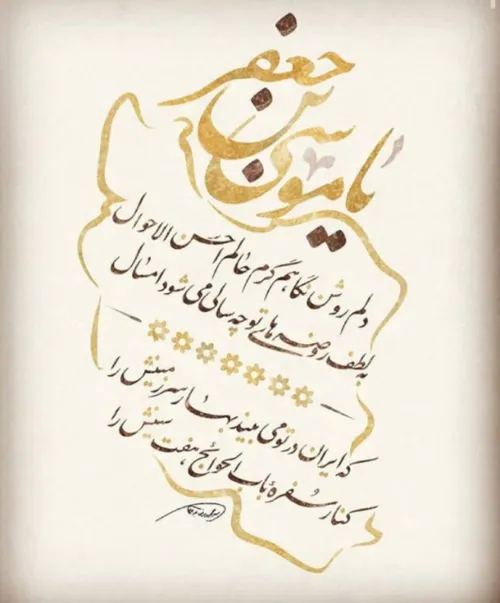 یا موسی بن جعفر
دلم روشن نگاهم گرم حالم احسن الاحوال
به لطف روضه های تو چه سالی می شود امسال
که ایران در تو می بیند بهار سرزمینش را
کنار سفرهٔ باب الحوائج هفت سینش را